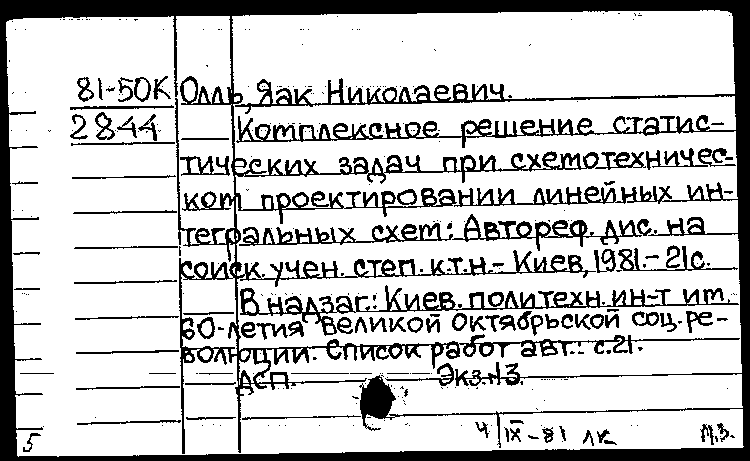 81-50К Олль, Яак Николаевич.
2844 Комплексное решение статис-
тических задач при схемотехничес-
ком проектировании линейных ин-
тегральных схем: Автореф. дис. на
соиск. учен. степ. к.т.н.- Киев, 1981.- 21с.
В надзаг.: Киев. политехн. ин-т им.
60-летия Великой Октябрьской соц. ре-
волюции. Список работ авт.: с.21.
ДСП. Экз.13.
4/IX-81 ЛК
5